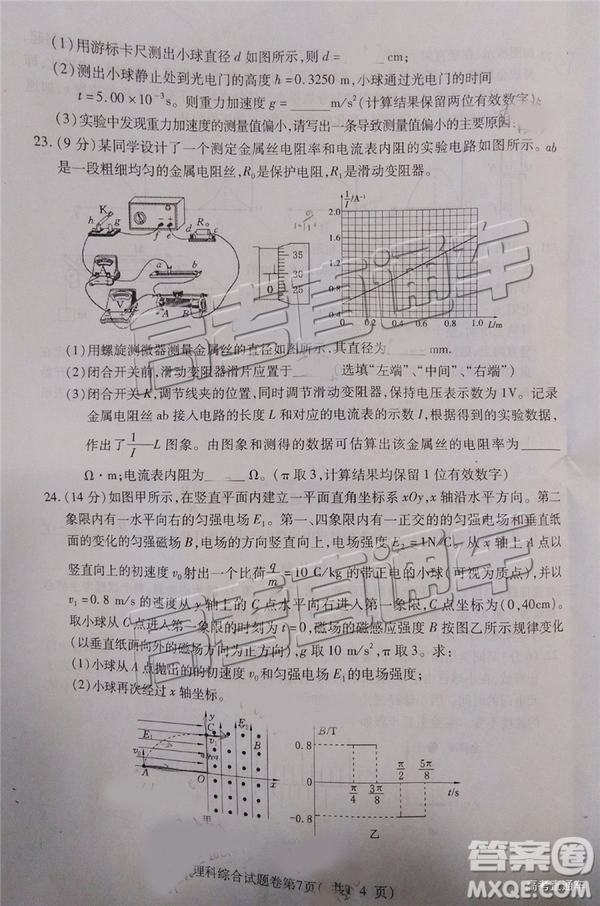 (1)用游标卡尺测出小球直径 d 如图所示,则 d= cm;
(2)测出小球静止处到光电门的高度 h=0.3250 m,小球通过光电门的时间
t=5.00×10⁻³s。则重力加速度 g= m/s²(计算结果保留两位有效数字)
(3)实验中发现重力加速度的测量值偏小,请写出一条导致测量值偏小的主要原因:
23.(9分)某同学设计了一个测定金属丝电阻率和电流表内阻的实验电路如图所示。ab
是一段粗细均匀的金属电阻丝,R₀是保护电阻,R₁是滑动变阻器。
K
h g
f e
R₀
d c
a b
A B
35
30
25
1/I /A⁻¹
2.0
1.6
1.2
0.8
0.4
0 0.2 0.4 0.6 0.8 1.0 L/m
(1)用螺旋测微器测量金属丝的直径如图所示,其直径为 mm.
(2)闭合开关前,滑动变阻器滑片应置于 (选填“左端”、“中间”、“右端”)
(3)闭合开关K,调节线夹的位置,同时调节滑动变阻器,保持电压表示数为1V。记录
金属电阻丝 ab 接入电路的长度 L 和对应的电流表的示数 I,根据得到的实验数据,
作出了 1/I—L 图象。由图象和测得的数据可估算出该金属丝的电阻率为
Ω·m;电流表内阻为 Ω。(π取3,计算结果均保留1位有效数字)
24.(14分)如图甲所示,在竖直平面内建立一平面直角坐标系 xOy,x 轴沿水平方向。第二
象限内有一水平向右的匀强电场 E₁。第一、四象限内有一正交的的匀强电场和垂直纸
面的变化的匀强磁场B,电场的方向竖直向上,电场强度E₂=1N/C。从 x 轴上 A 点以
竖直向上的初速度 v₀ 射出一个比荷 q/m=10 C/kg 的带正电的小球(可视为质点),并以
v₁=0.8 m/s 的速度从 y 轴上的 C 点水平向右进入第一象限,C点坐标为(0,40cm)。
取小球从C点进入第一象限的时刻为 t=0,磁场的磁感应强度按图乙所示规律变化
(以垂直纸面向外的磁场方向为正方向),g 取 10 m/s²,π取3。求:
(1)小球从 A 点抛出的的初速度 v₀ 和匀强电场 E₁ 的电场强度;
(2)小球再次经过 x 轴坐标。
y
C
E₁
E₂
v₁
B
v₀
A O x
甲
B/T
0.8
0
−0.8
π/4 3π/8 π/2 5π/8 t/s
乙
理科综合试题卷第7页(共 4 页)
高考直通车
答案圈
MXQE.COM
高考直通车